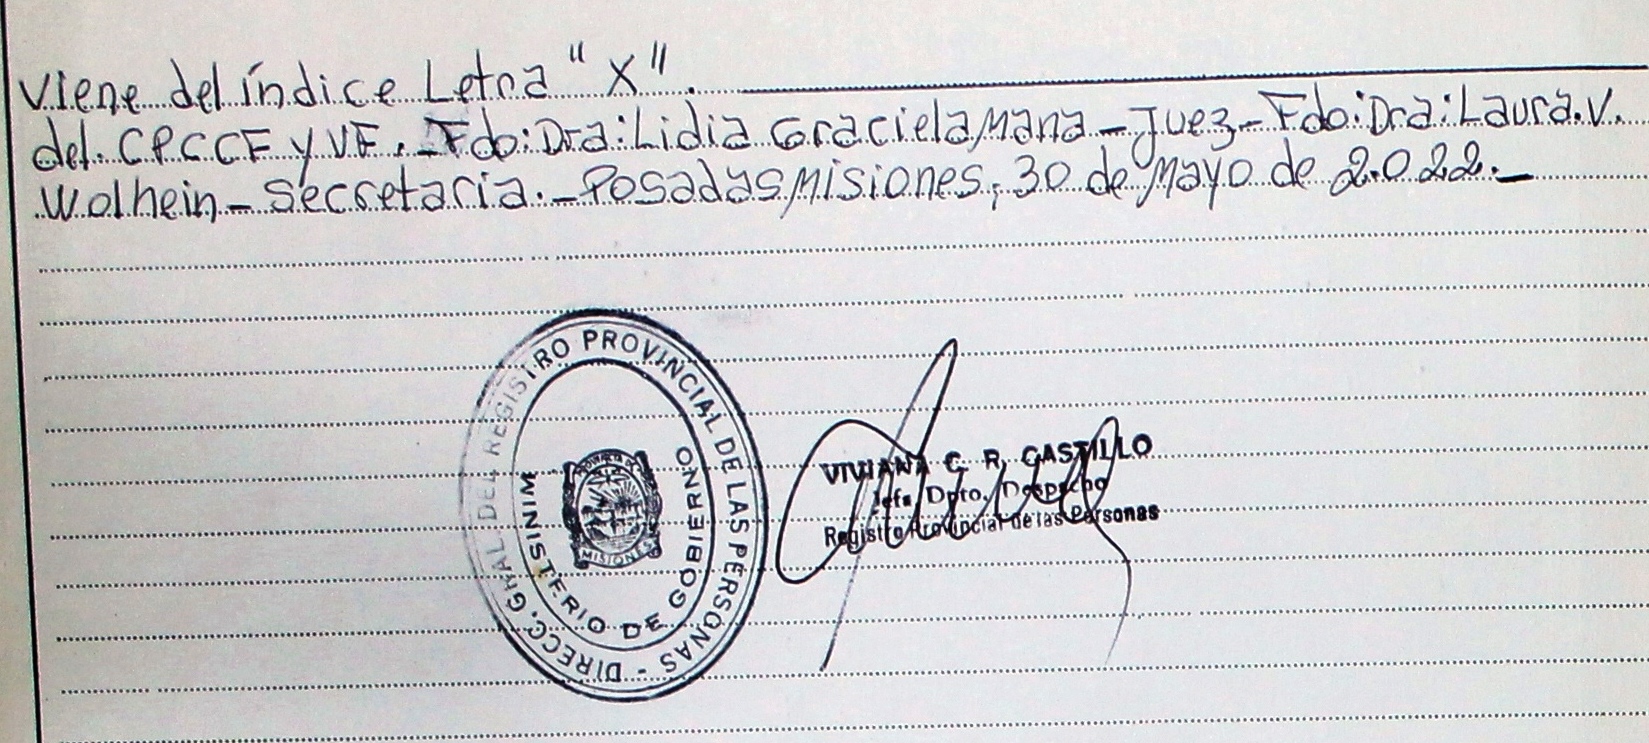 Viene del índice Letra "X".
del CPCCF y VF. _Fdo: Dra: Lidia Graciela Mana _ Juez _ Fdo: Dra: Laura. V.
Wolhein _ Secretaria. _ Posadas Misiones, 30 de Mayo de 2.022. _
DIRECC. GRAL. DEL REGISTRO PROVINCIAL DE LAS PERSONAS -
MINISTERIO DE GOBIERNO
MISIONES
VIVIANA C. R. CASTILLO
Jefa Dpto. Despacho
Registro Provincial de las Personas